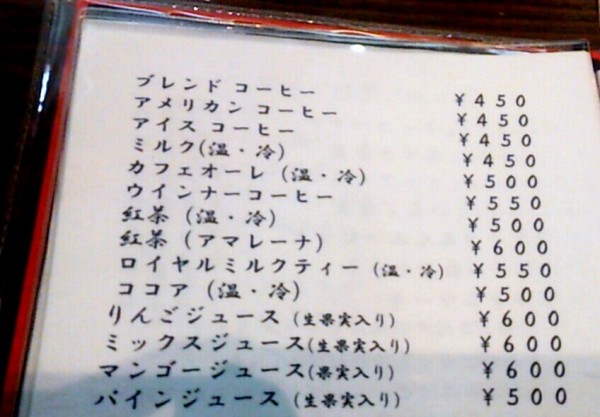 ブレンド コーヒー ¥450
アメリカン コーヒー ¥450
アイス コーヒー ¥450
ミルク(温・冷) ¥450
カフェオーレ (温・冷) ¥500
ウインナーコーヒー ¥550
紅茶 (温・冷) ¥500
紅茶 (アマレーナ) ¥600
ロイヤルミルクティー (温・冷) ¥550
ココア (温・冷) ¥500
りんごジュース (生果実入り) ¥600
ミックスジュース(生果実入り) ¥600
マンゴージュース(果実入り) ¥600
パインジュース (生果実入り) ¥500